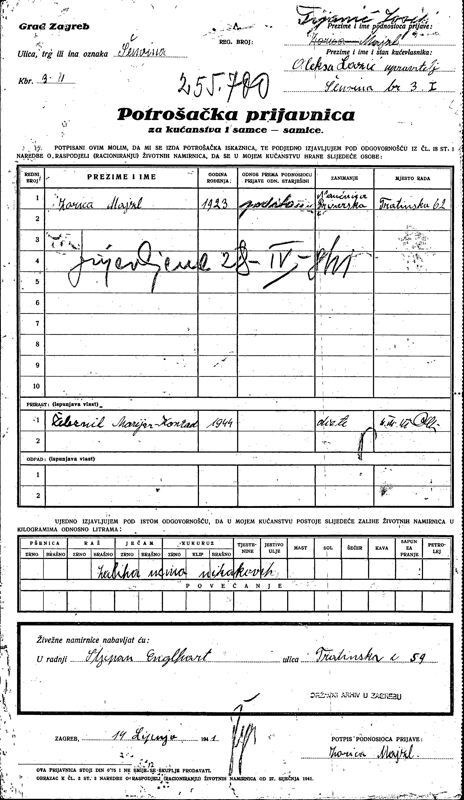 Grad Zagreb
A
REG. BROJ:
Prezime i ime podnosioca prijave:
Zorica Majzl
Ulica, trg ili ina oznaka Šenoina
Prezime i ime i stan kućevlasnika:
Kbr. 3 II
255.700
upravitelj
br 3. I
Potrošačka prijavnica
za kućanstva i samce — samice.
POTPISANI OVIM MOLIM, DA MI SE IZDA POTROŠAČKA ISKAZNICA, TE PODJEDNO IZJAVLJUJEM POD ODGOVORNOŠĆU IZ ČL. 18 ST. 1
NAREDBE O RASPODJELI (RACIONIRANJU) ŽIVOTNIH NAMIRNICA, DA SE U MOJEM KUĆANSTVU HRANE SLIJEDEĆE OSOBE:
REDNI BROJ
PREZIME I IME
GODINA ROĐENJA:
ODNOS PREMA PODNOSIOCU PRIJAVE ODN. STARJEŠINI
ZANIMANJE
MJESTO RADA
1 Zorica Majzl 1923 Tratinska 62
2
3
4
prijavljena 28-IV-
5
6
7
8
9
10
PRIRAST: (ispunjava vlast)
1 Marijan-Konrad 1944 dijete
2
OTPAD: (ispunjava vlast)
1
2
UJEDNO IZJAVLJUJEM POD ISTOM ODGOVORNOŠĆU, DA U MOJEM KUĆANSTVU POSTOJE SLIJEDEĆE ZALIHE ŽIVOTNIH NAMIRNICA U
KILOGRAMIMA ODNOSNO LITRAMA:
PŠENICA RAŽ JEČAM KUKURUZ TJESTENINE JESTIVO ULJE MAST SOL ŠEĆER KAVA SAPUN ZA PRANJE PETROLEJ
ZRNO BRAŠNO ZRNO BRAŠNO ZRNO BRAŠNO ZRNO KLIP BRAŠNO
Zaliha nema nikakovih
POVEĆANJE
Živežne namirnice nabavljat ću:
U radnji Stjepan Englhart ulica Tratinska c 59
DRŽAVNI ARHIV U ZAGREBU
ZAGREB, 14 Lipnja 1941
POTPIS PODNOSIOCA PRIJAVE:
Zorica Majzl
OVA PRIJAVNICA STOJI DIN 0'75 I NE SMIJE SE SKUPLJE PRODAVATI.
OBRAZAC K ČL. 2 ST. 2 NAREDBE O RASPODJELI (RACIONIRANJU) ŽIVOTNIH NAMIRNICA OD 27. SIJEČNJA 1941.